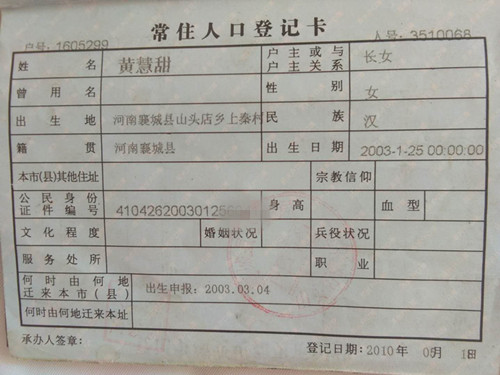 常住人口登记卡
户号: 1605299 人号: 3510068
姓名 黄慧甜 户主或与户主关系 长女
曾用名 性别 女
出生地 河南襄城县山头店乡上秦村 民族 汉
籍贯 河南襄城县 出生日期 2003-1-25 00:00:00
本市(县)其他住址 宗教信仰
公民身份证件编号 41042620030125 身高 血型
文化程度 婚姻状况 兵役状况
服务处所 职业
何时由何地迁来本市(县) 出生申报: 2003.03.04
何时由何地迁来本址
承办人签章: 登记日期: 2010年 05月 18日